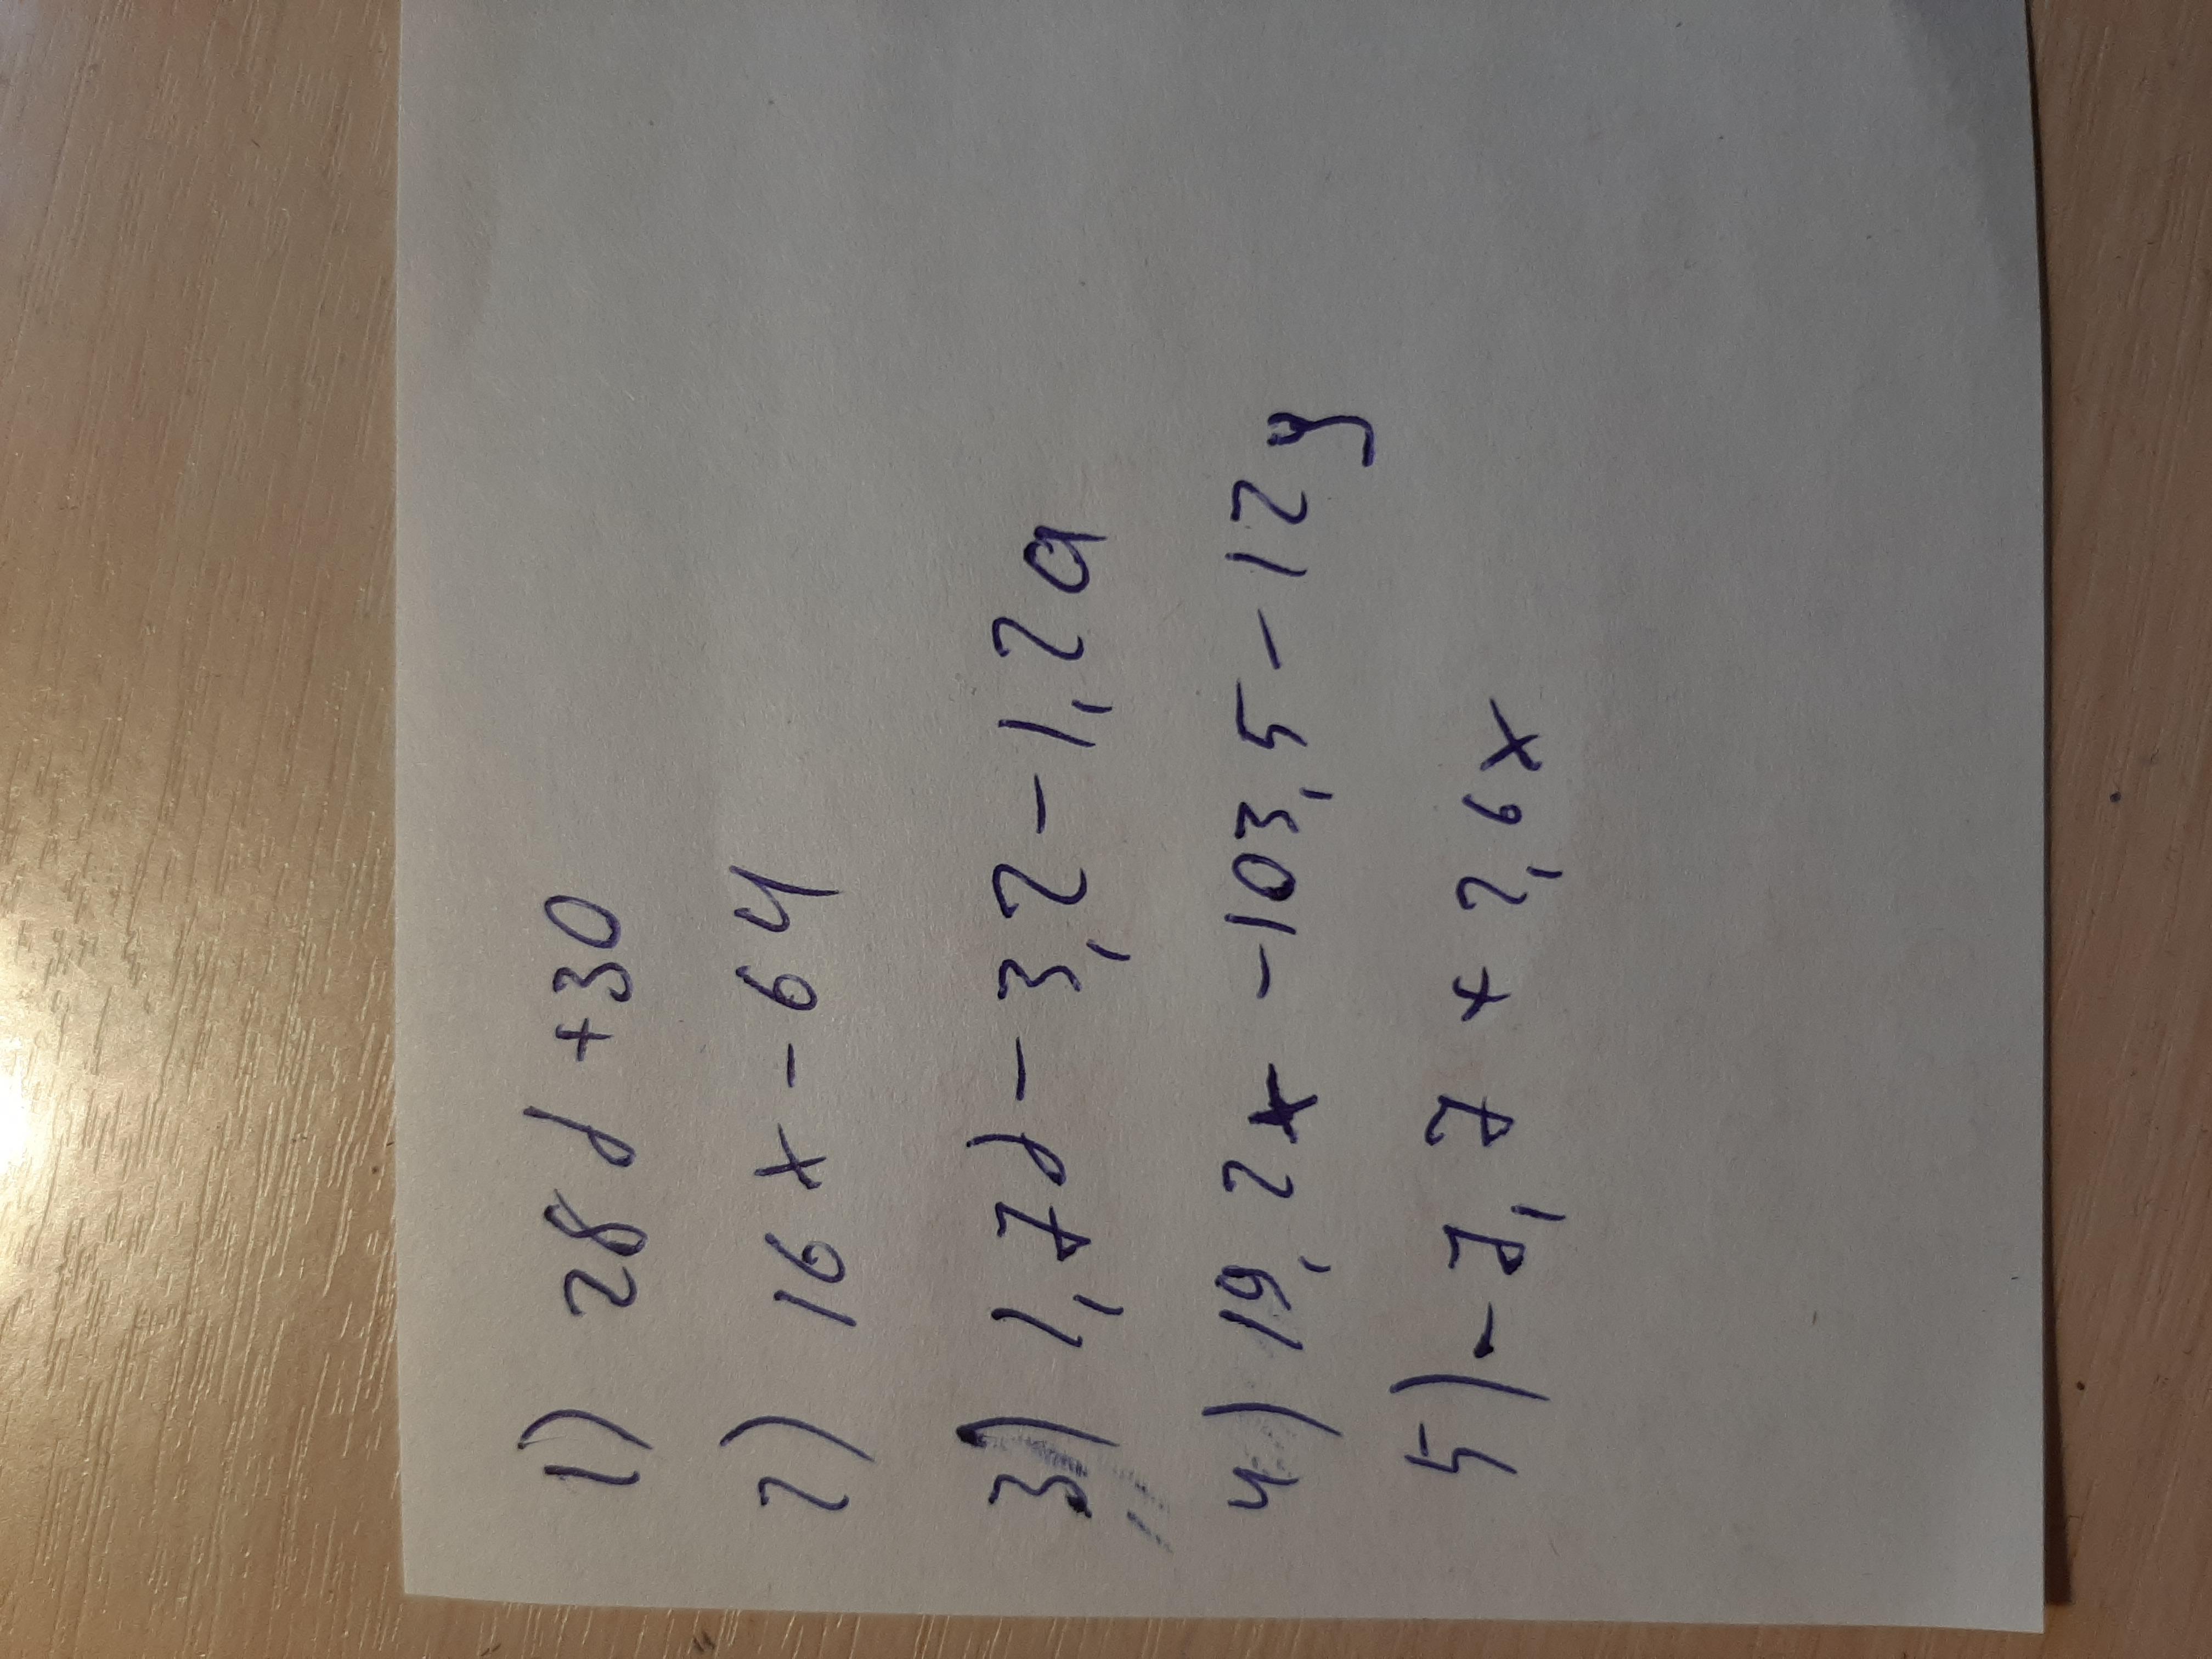 1) 28 d + 30
2) 16 x - 64
3) 1,7d - 3,2 - 1,2a
4) 19,2x - 103,5 - 12y
5) - 7,7 + 2,6x